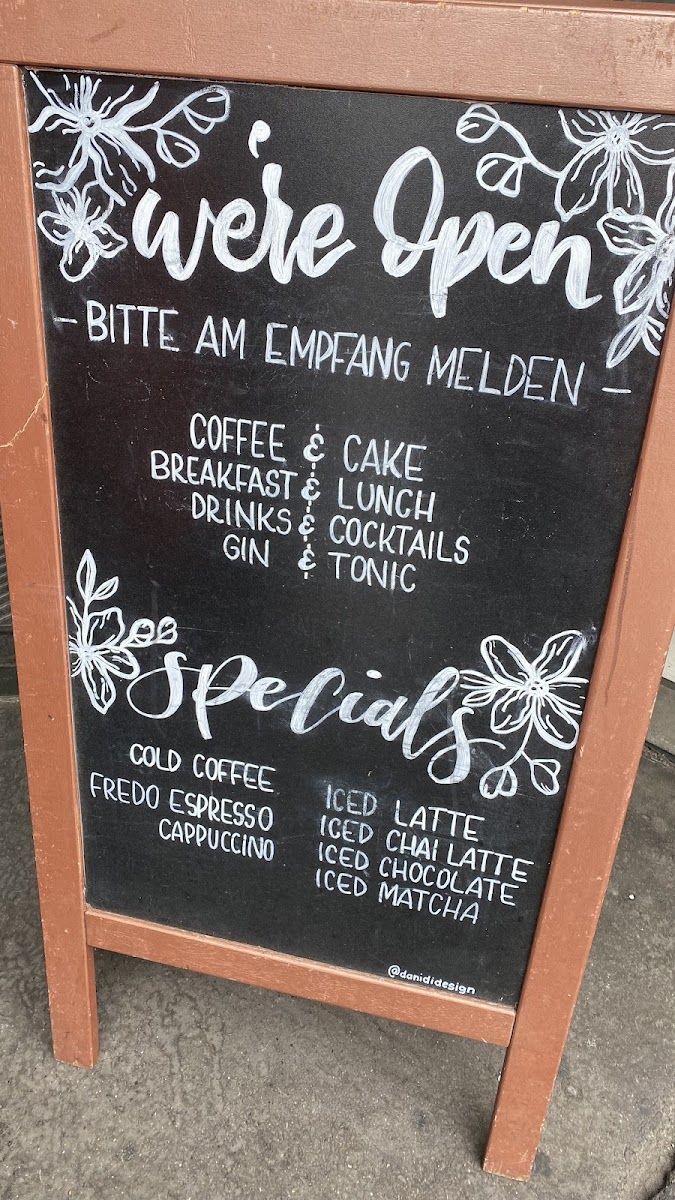 We're Open
- BITTE AM EMPFANG MELDEN -
COFFEE & CAKE
BREAKFAST & LUNCH
DRINKS & COCKTAILS
GIN & TONIC
Specials
COLD COFFEE
FREDO ESPRESSO
CAPPUCCINO
ICED LATTE
ICED CHAI LATTE
ICED CHOCOLATE
ICED MATCHA
@danididesign